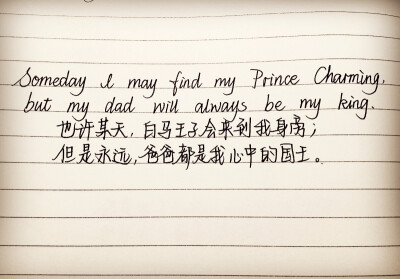 Someday I may find my Prince Charming,
but my dad will always be my king.
也许某天，白马王子会来到我身旁；
但是永远，爸爸都是我心中的国王。